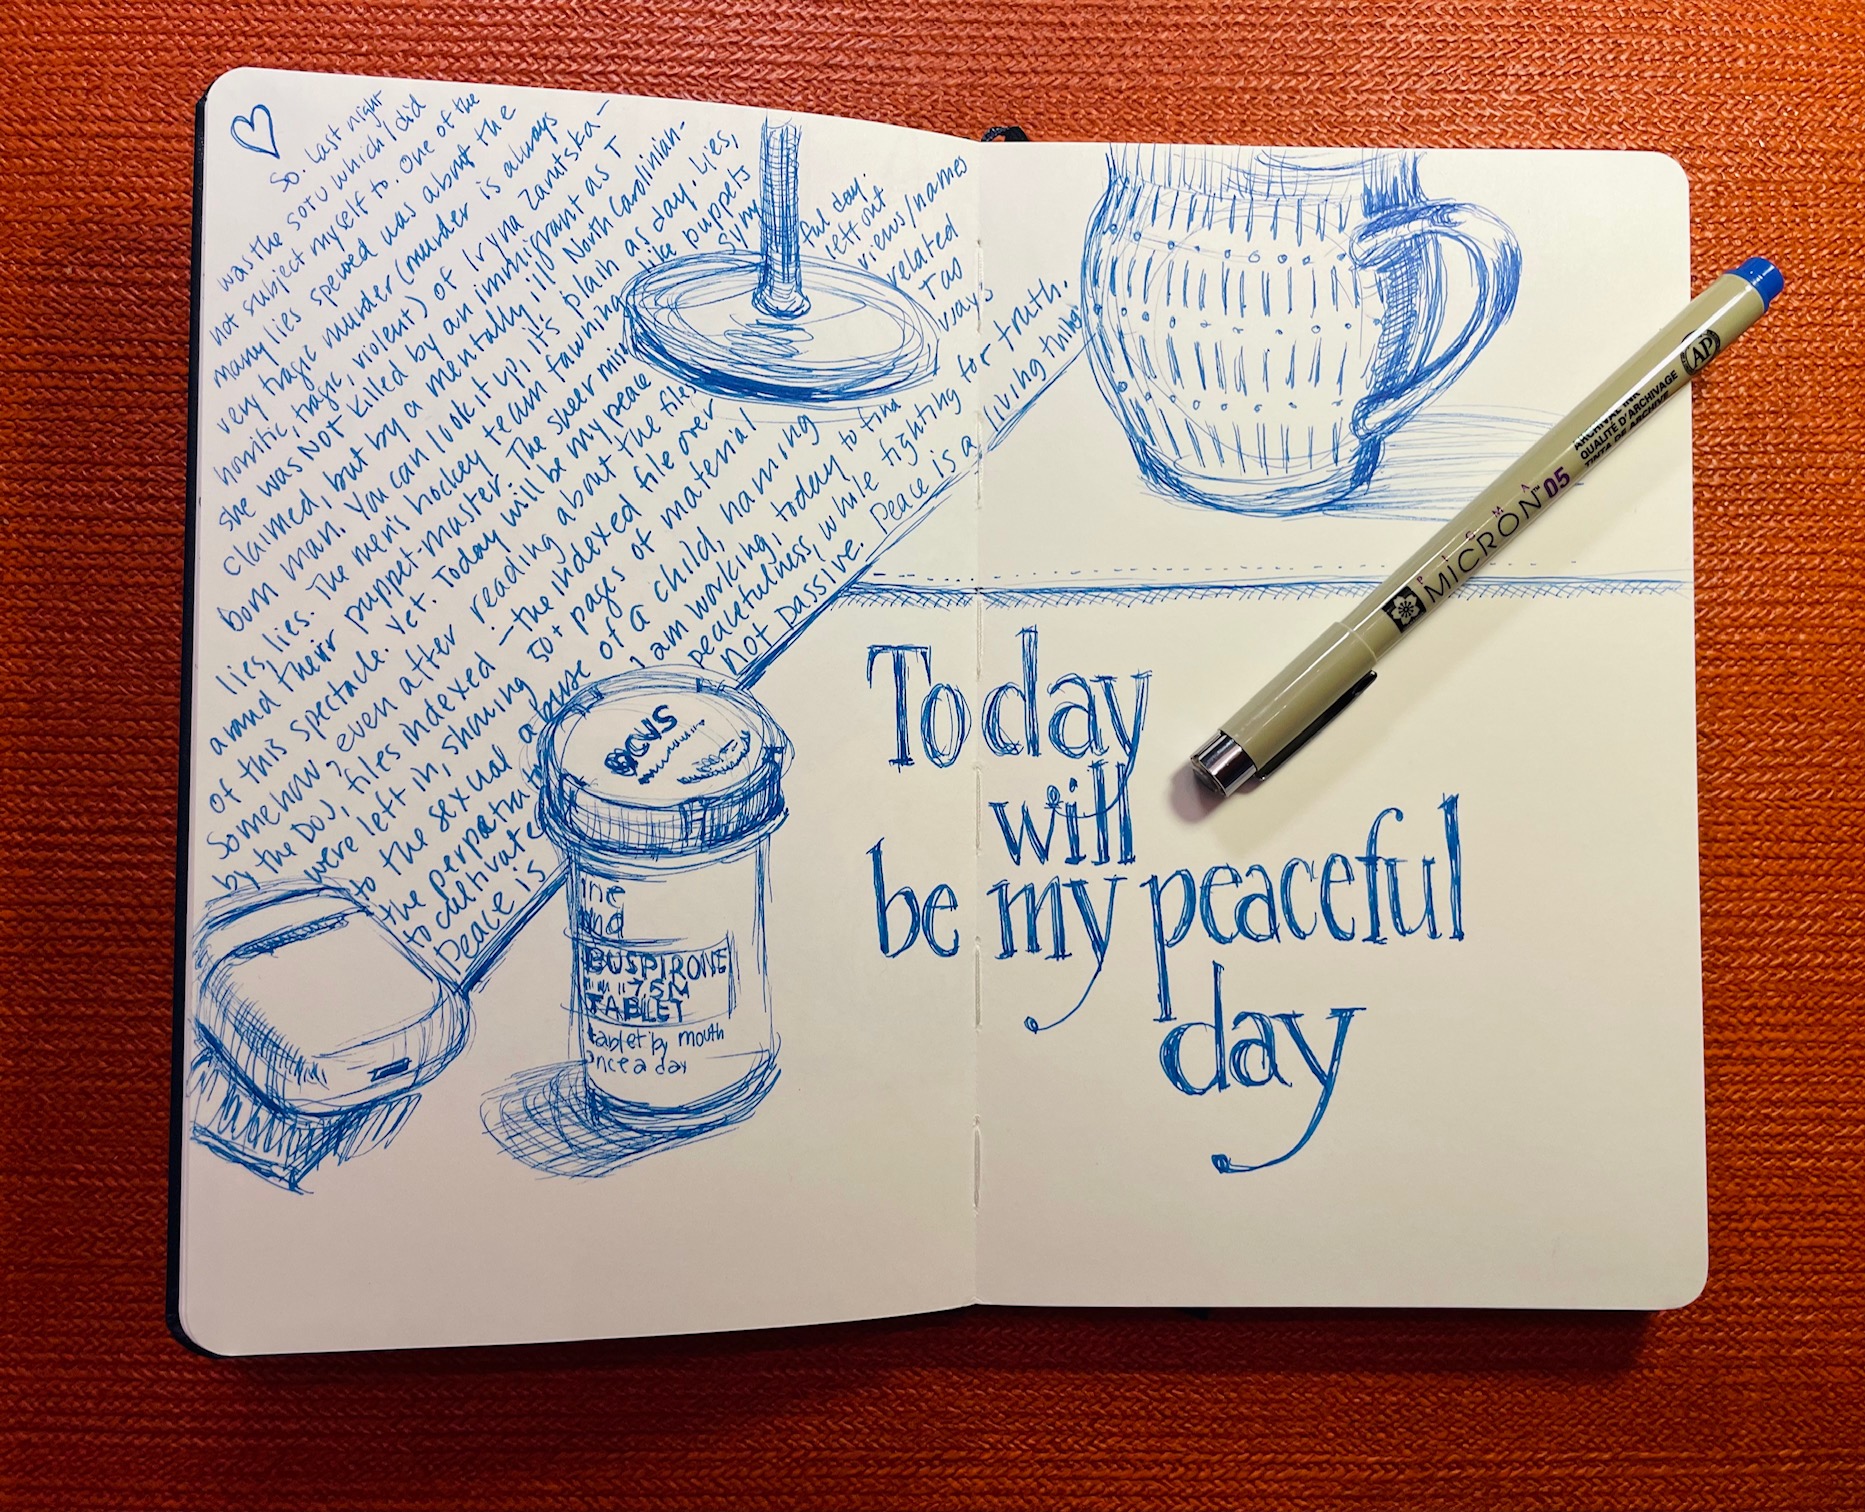 So. Last night
was the SOTU which I did
not subject myself to. One of the
many lies spewed was about the
very tragic murder (murder is always
horrific, tragic, violent) of Iryna Zarutska –
she was NOT killed by an immigrant as T
claimed, but by a mentally ill North Carolinian-
born man. You can look it up, it's plain as day. Lies,
lies, lies. The men's hockey team fawning like puppets
around their puppet-master. The sheer
of this spectacle. Yet. Today will be my peace ful day.
Somehow, even after reading about the files left out
by the DOJ, files indexed – the indexed file over views/names
were left in, showing 50+ pages of material related
to the sexual abuse of a child, naming
the perpetrator I am working, today to find ways
to cultivate peacefulness, while fighting for truth.
Peace is not passive. Peace is a living thing
FOCUS
ine
BUSPIRONE
TABLET
tablet by mouth
once a day
Today
will
be my peaceful
day
PIGMA
MICRON™ 05
QUALITÉ D'ARCHIVE
TINTA DE ARCHIVE
AP